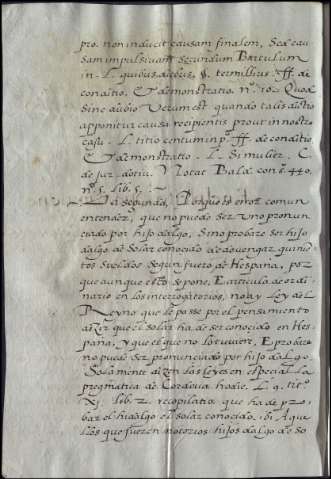 pro. non inducit causam finalem, Sed cau
sam impulsivam secundum Bartulum
in. L. quibus diebus, §. termilius. ff. de
conditio. Et demonstratio. nº. 10. Quod
sine dubio Verum est quando talis dictio
apponitur causa recipientis prout in nostro
casu. L. titio centum in pº. ff. de conditio
Et demonstratio. L. Si mulier. C.
de jur. dotiu. Notat Bald. consº. 440.
nº. 5. lib. 5.
La segunda, Porque es error comun
entender, que no puede ser uno pronun
ciado por hijo dalgo, Sino probare ser hijo
dalgo de Solar conocido de devengar quinie
tos sueldos segun fuero de Hespaña, por
que aunque esto se pone, E articula de ordi
nario en los interrogatorios, no ay Ley del
Reyno que le passe por el pensamiento
dizer que el solar ha de ser conocido en Hes
paña, y que el que no lo tuviere, E probare
no puede ser pronunciado por hijo dalgo
Solamente dizen las leyes en especial La
pregmatica de Cordova hodie. L. 9. titº.
XI. lib. 2. recopilatio que ha de pro
bar el hidalgo el solar conocido. ibi Aque
llos que fueren notorios hijos dalgo de so